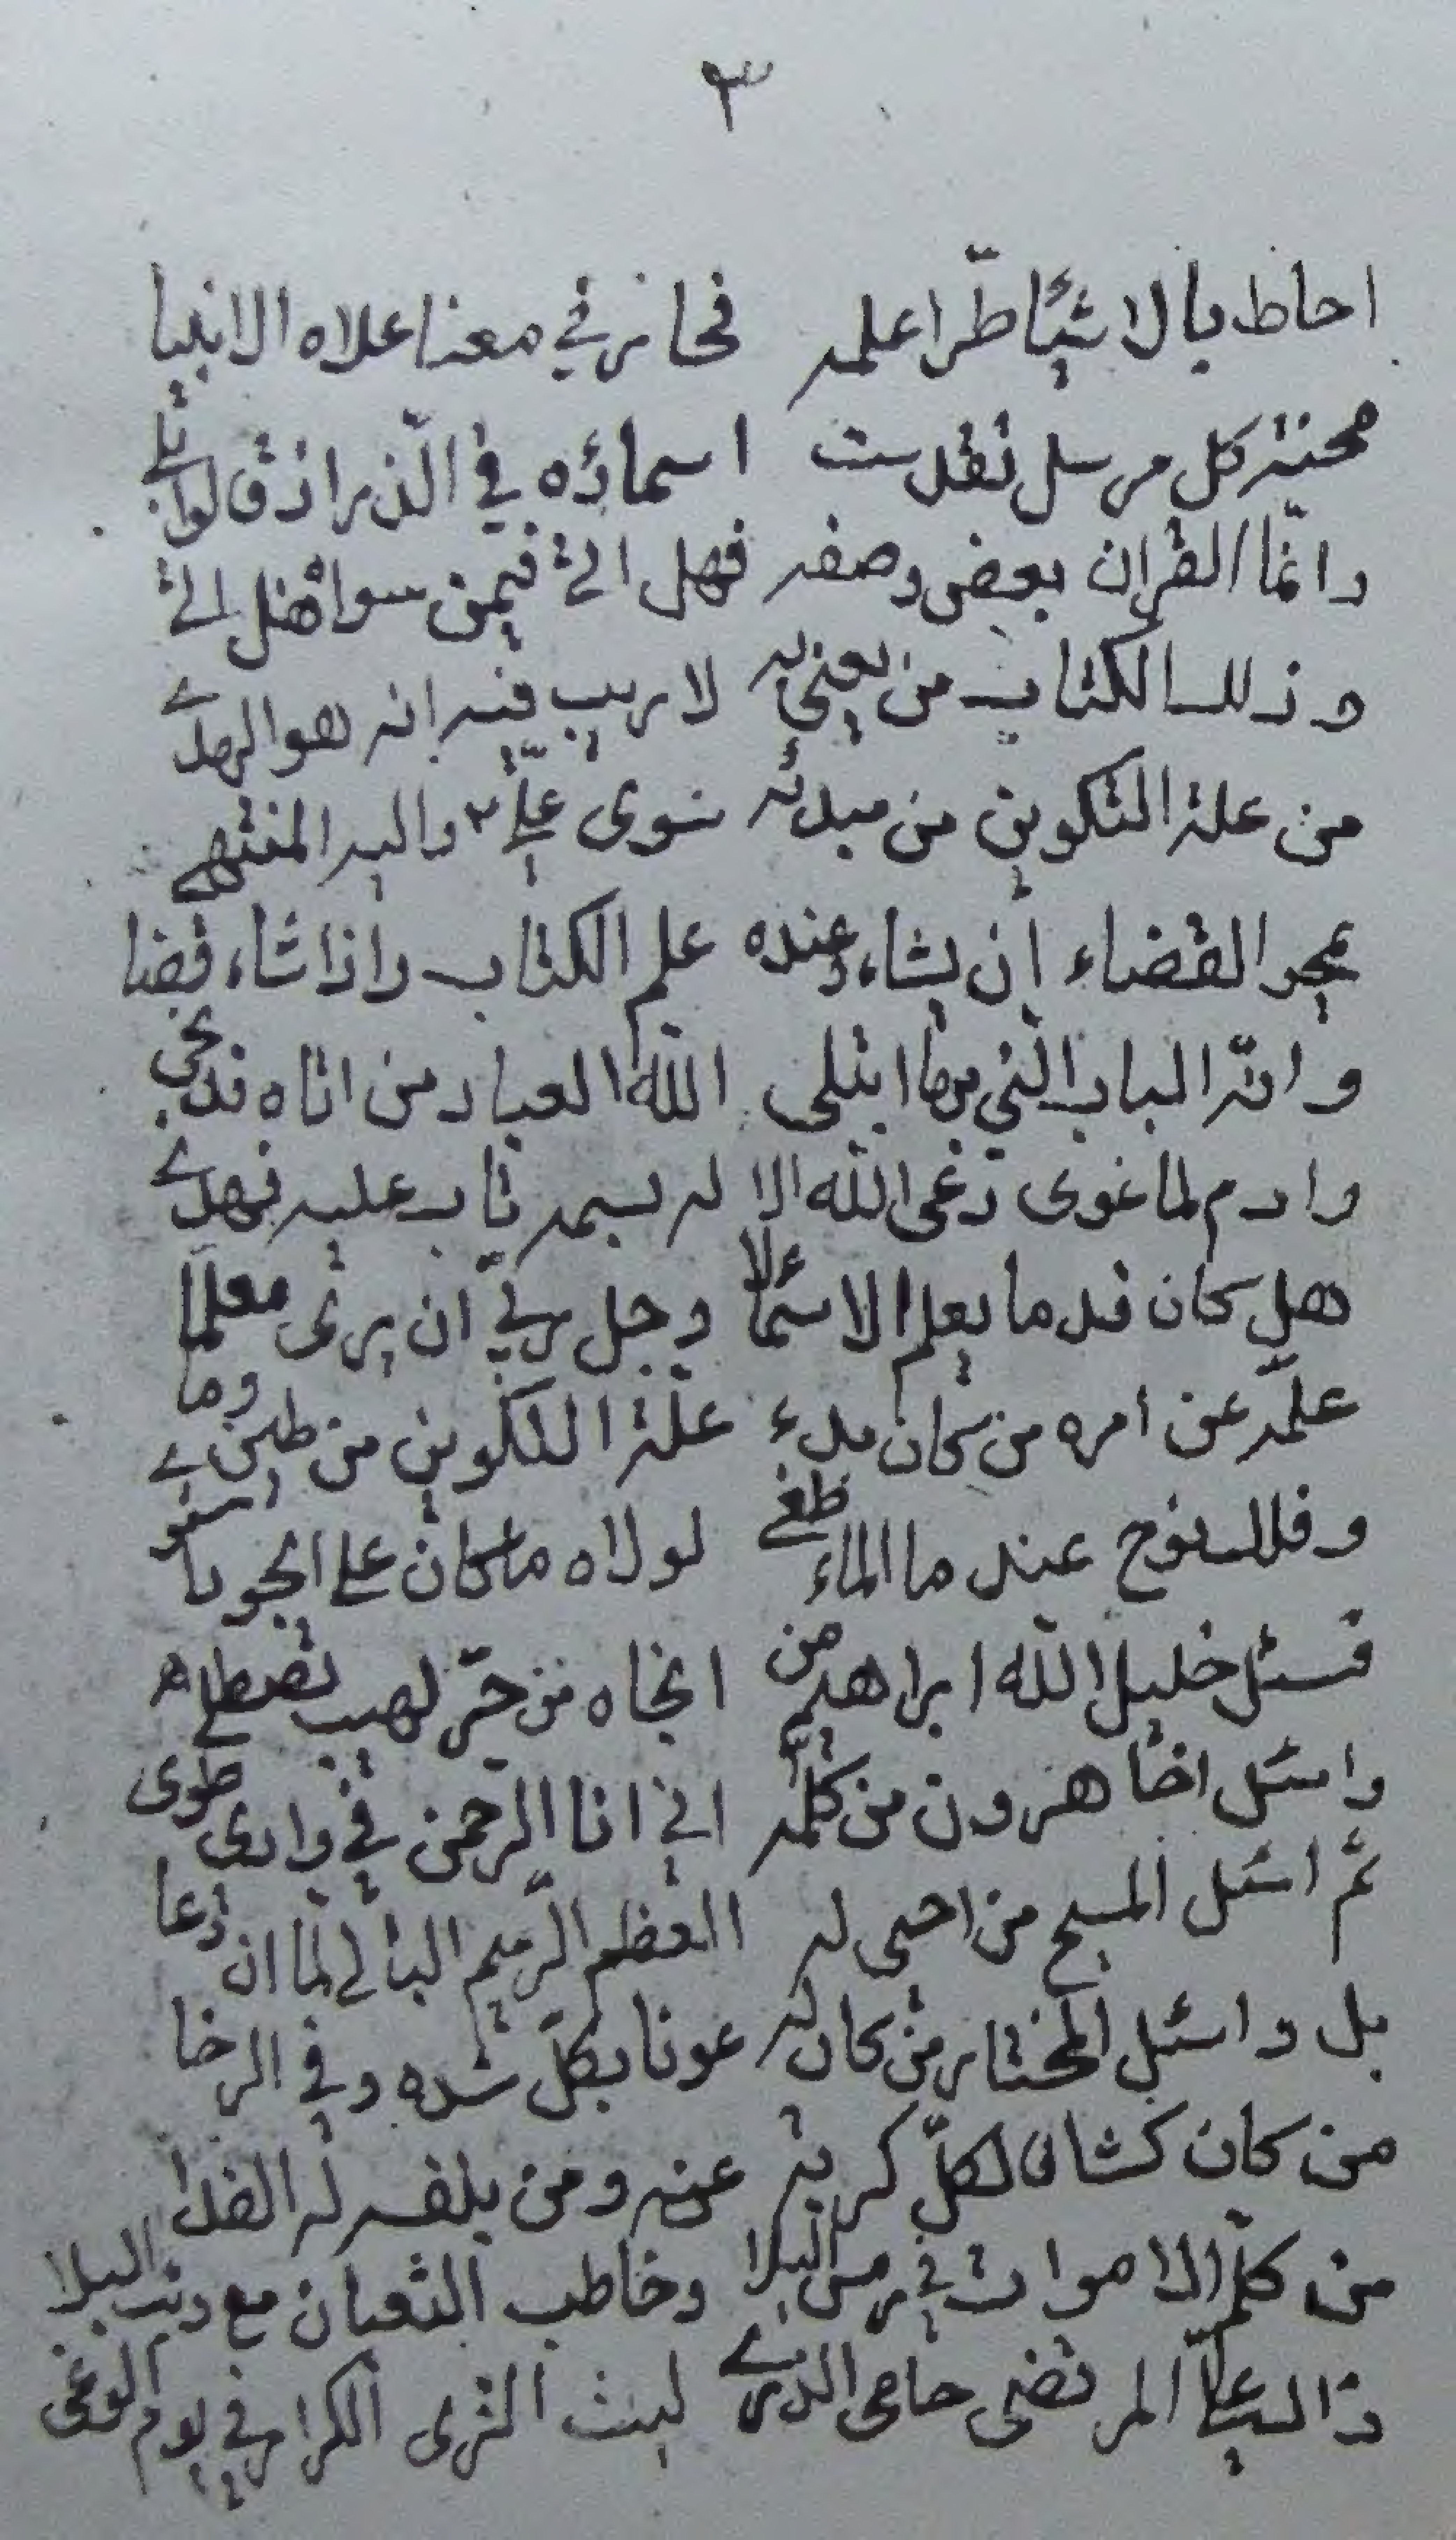 ٣
احاط بالاشيٓا طرّا علمه فحاز في معنا علاه الانبيا
محنته كل مرسل تقدست اسمائه في الذر اذ قالوا بلى
وانمّا القران بعض وصفه فهل اتى فيمن سواه هل اتى
وذلك الكتاب من يعنى به لا ريب فيه انه هو الهدى
من علة التكوين من مبدئه سوى عليّ واليه المنتهى
القضاء ان يشاء وعنده علم الكتاب واذا شاء قضا
وانّه الباب التي بها ابتلى الله العباد من اتاه قد نجى
وادم لما غوى دعى الله الا له بسمه تاب عليه فهدى
هل كان قدما يعلم الاسما علا وجل ربيّ ان يرى معلما
علمّه عن امره من كان بدء علّة التكوين من طين وما
وفلك نوح عند ما الماء طغى لولاه ما كان على الجودي استوى
فسئل خليل الله ابراهيم من انجاه من حرّ لهيب تصطلى
واسئل اخا هرون من كلمّه اني انا الرحمن في وادى طوى
ثمّ اسئل المسيح من احيى له العظم الرّميم البالي لمّا ان دعا
بل واسئل المختار من كان له عونا بكلّ شده وفي الرخا
من كان كشافا لكلّ كربة عنه ومن بنفسه له الفدا
من كلّم الاموات في رمس البلا وخاطب الثعبان مع
ذاك عليّ المرتضى حامى الذرى ليث الثرى الكرار في يوم الوغى